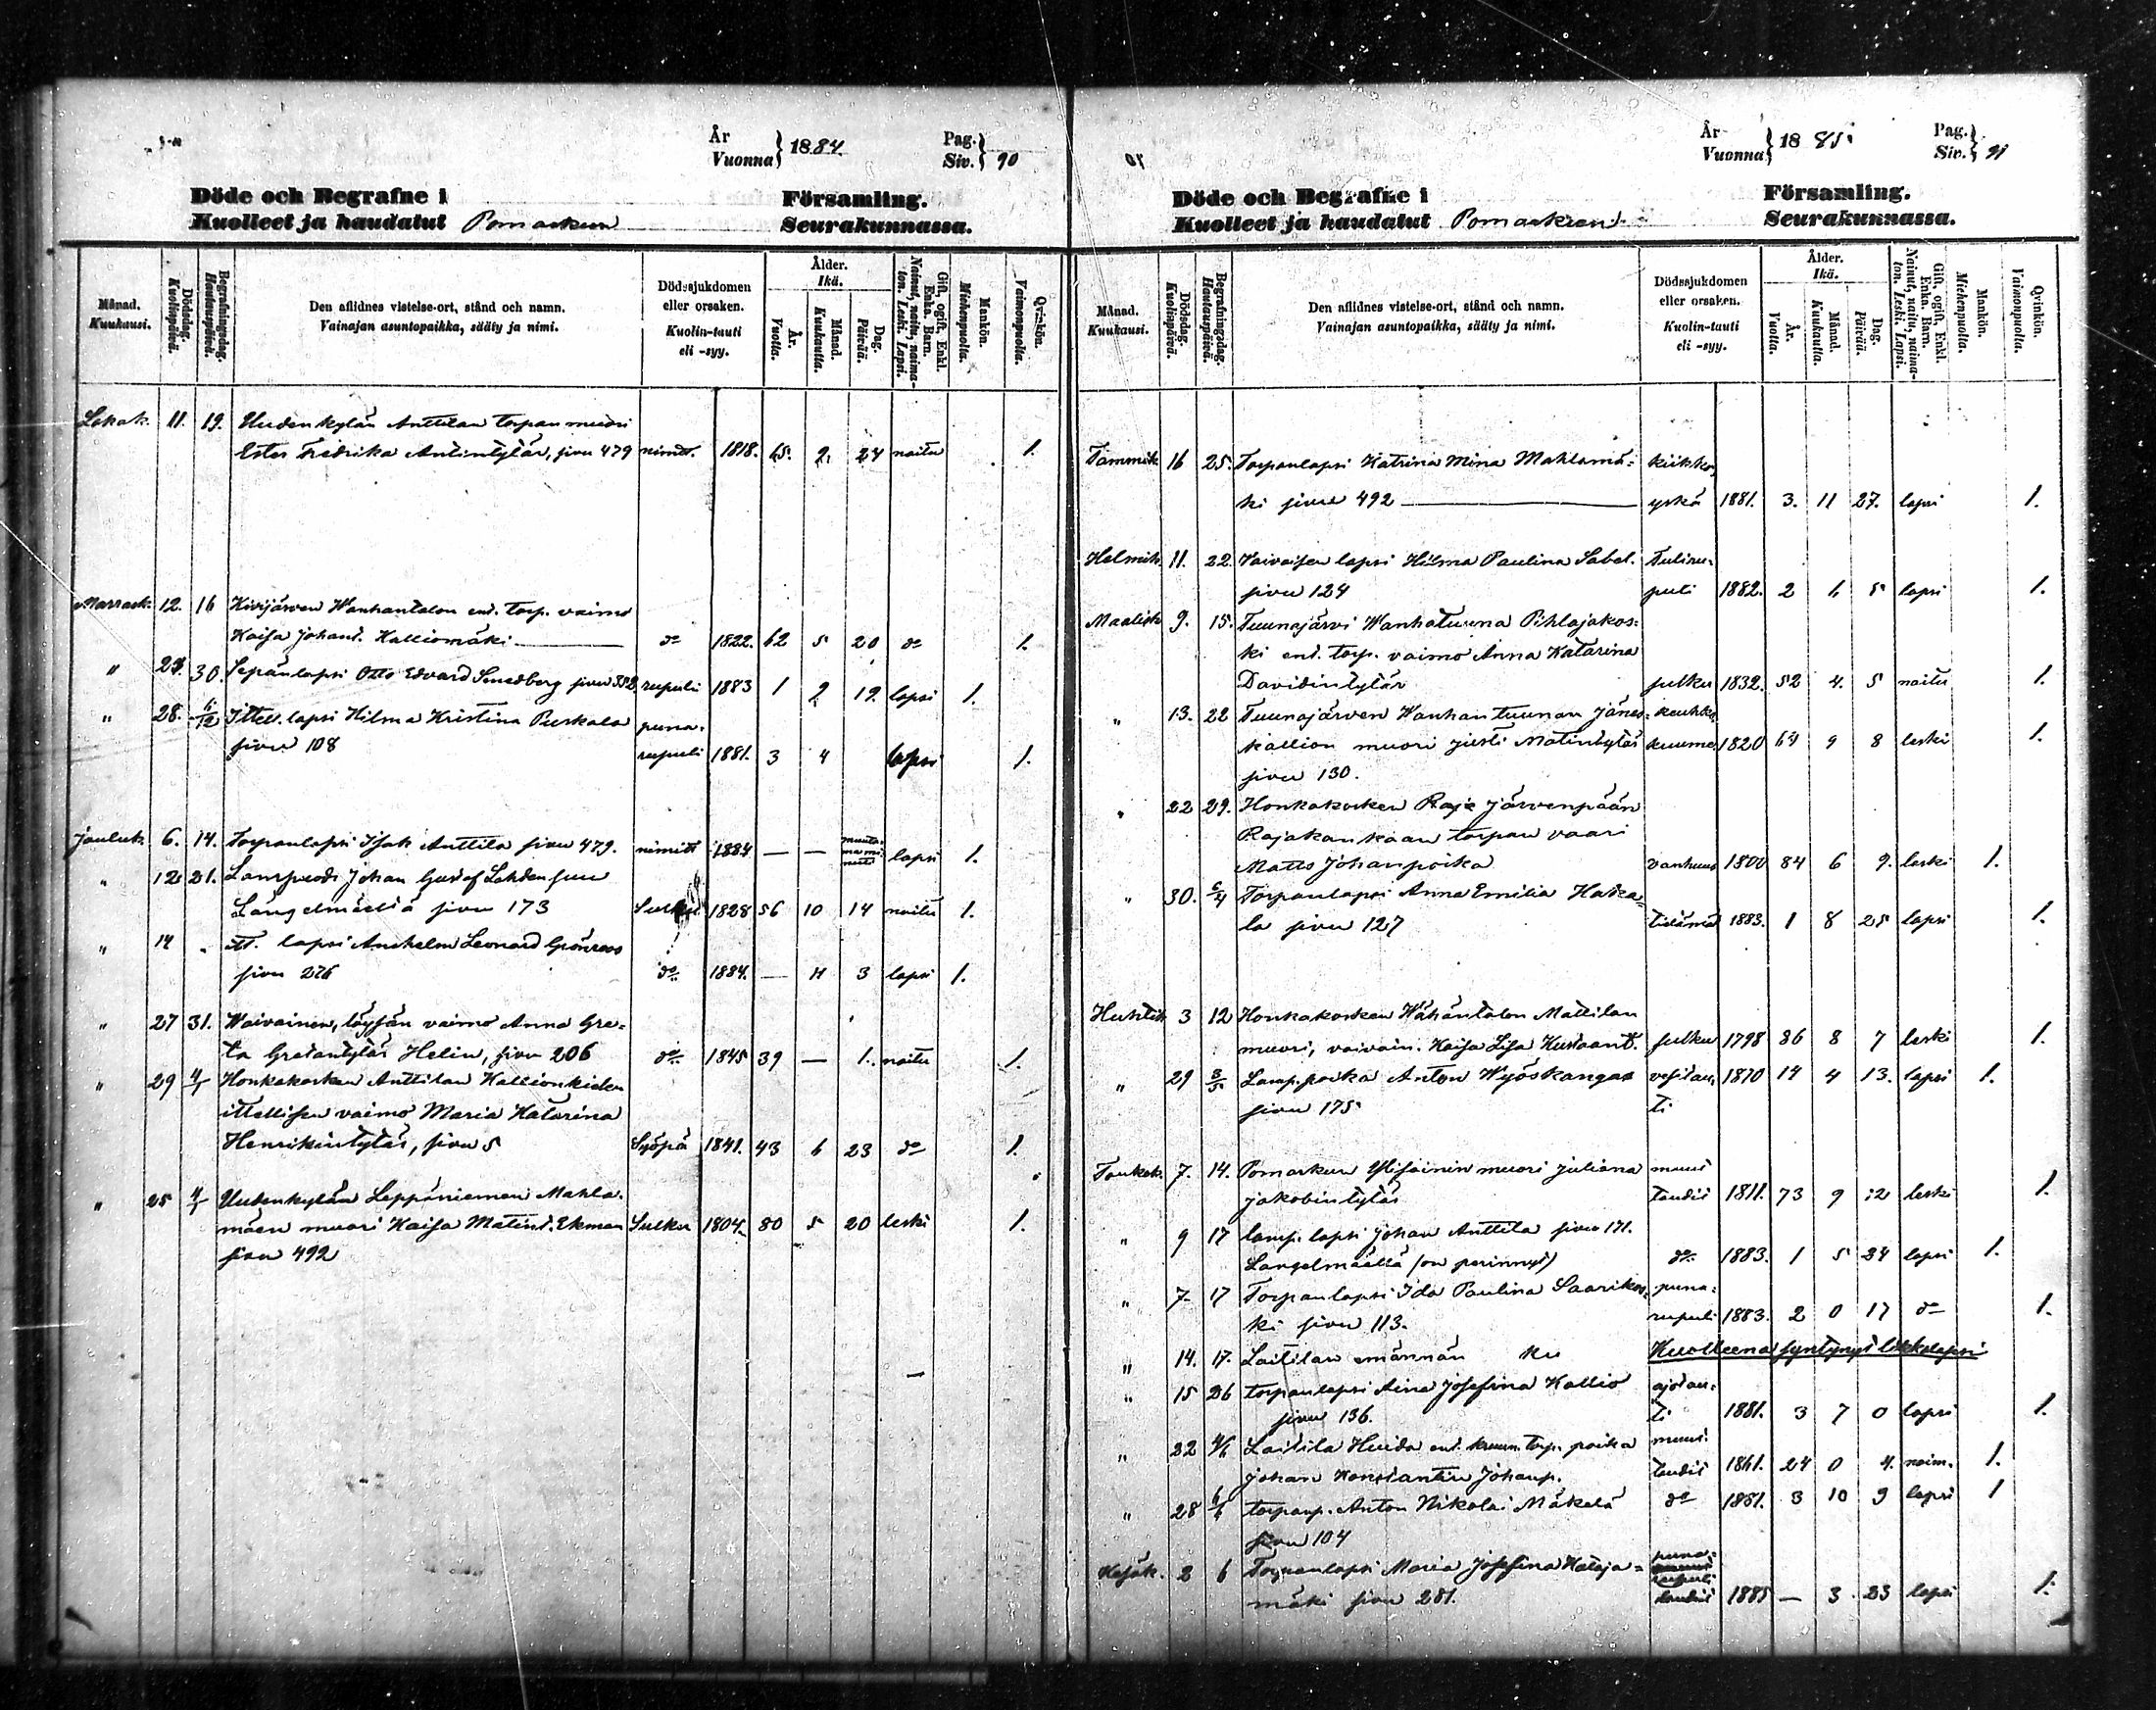 År
Vuonna } 1884
Pag.
Siv. } 90
Döde och Begrafne i Församling.
Kuolleet ja haudatut Pomarkun Seurakunnassa.
Månad. Kuukausi.
Dödsdag. Kuolinpäivä.
Begrafningsdag. Hautauspäivä.
Den aflidnes vistelse-ort, stånd och namn.
Vainajan asuntopaikka, sääty ja nimi.
Dödssjukdomen eller orsaken.
Kuolin-tauti eli -syy.
Ålder. Ikä.
År. Vuotta.
Månad. Kuukautta.
Dag. Päivää.
Gift, ogift, Enkl. Enka. Barn.
Nainut, naitu, naimaton. Leski. Lapsi.
Mankön. Miehenpuolta.
Qvinkön. Vaimonpuolta.
Lokak. 11. 19. Uudenkylän Anttilan torpan muori
Ester Fredrika Antintytär, sivu 479 nimit. 1818. 65. 2. 24 naitu 1.
Marrask. 12. 16 Kivijärven Wanhantalon ent. torp. vaimo
Kaisa Johant. Kalliomäki do 1822. 62 5 20 do 1.
" 23. 30. Sepänlapsi Otto Edvard Smedberg sivu 352 rupuli 1883 1 2 12 lapsi 1.
" 28. 6/12 Ittell. lapsi Hilma Kristina Puskala puna-
sivu 108 rupuli 1881. 3 4 lapsi 1.
Jouluk. 6. 14. Torpanlapsi Isak Anttila sivu 479. nimitt 1884 — — lapsi 1.
" 12 21. Lampuodi Johan Gustaf Lahden
Längelmäeltä sivu 173 1828 56 10 14 naitu 1.
" 14 " lapsi Anshelm Leonard Grönroos
sivu 276 do. 1884. — 11 3 lapsi 1.
" 27 31. Waivainen, löysän vaimo Anna Gre-
ta Gretantytär Helin, sivu 206 do. 1845 39 — 1. naitu 1.
" 29 4/1 Honkakosken Anttilan Kallionkielen
ittellisen vaimo Maria Katarina
Henrikintytär, sivu 5 Syöpä 1841. 43 6 23 do 1.
" 25 4/1 Uudenkylän Leppäniemen Mahla-
mäen muori Kaisa Matint. Ekman Sulku 1804. 80 5 20 leski 1.
sivu 492
År
Vuonna } 1885
Pag.
Siv. } 91
Döde och Begrafne i Församling.
Kuolleet ja haudatut Pomarkun Seurakunnassa.
Månad. Kuukausi.
Dödsdag. Kuolinpäivä.
Begrafningsdag. Hautauspäivä.
Den aflidnes vistelse-ort, stånd och namn.
Vainajan asuntopaikka, sääty ja nimi.
Dödssjukdomen eller orsaken.
Kuolin-tauti eli -syy.
Ålder. Ikä.
År. Vuotta.
Månad. Kuukautta.
Dag. Päivää.
Gift, ogift, Enkl. Enka. Barn.
Nainut, naitu, naimaton. Leski. Lapsi.
Mankön. Miehenpuolta.
Qvinkön. Vaimonpuolta.
Tammik 16 25. Torpanlapsi Katrina Mina Mahlamä-
ki sivu 492 yskä 1881. 3. 11 27. lapsi 1.
Helmik 11. 22. Vaivaisen lapsi Hilma Paulina Sabel. Tuliru-
sivu 124 puli 1882. 2 6 5 lapsi 1.
Maalisk 9. 15. Tuunajärvi Wanhatuuna Pihlajakos-
ki ent. torp. vaimo Anna Katarina
Davidintytär sulku 1832. 52 4. 5 naitu 1.
" 13. 22 Tuunajärven Wanhantuunan Jänes- keuhko-
kallion muori Justi Matintytär kuume 1820 64 9 8 leski 1.
sivu 130.
" 22 29. Honkakosken Raja Järvenpään
Rajakankaan torpan vaari
Matts Johanpoika vanhuus 1800 84 6 9. leski 1.
" 30. 6/4 Torpanlapsi Anna Emilia Hataa-
la sivu 127 tietämä 1883. 1 8 25 lapsi 1.
Huhtik 3 12 Honkakosken Wähäntalon Mattilan
muori, vaivain. Kaisa Lisa Kustaant. sulku 1798 86 8 7 leski 1.
" 29 3/5 Lamp. poika Anton Wyöskangas vesitau- 1870 14 4 13. lapsi 1.
sivu 175 ti
Toukok. 7. 14. Pomarkun Ylisainin muori Juliana muut
Jakobintytär taudit 1811. 73 9 12 leski 1.
" 9 17 lamp. lapsi Johan Anttila sivu 171.
Langelmäellä (on perinnyt) do. 1883. 1 5 24 lapsi 1.
" 7 17 Torpanlapsi Ida Paulina Saarikos- puna-
ki sivu 113. rupuli 1883. 2 0 17 do 1.
" 14. 17. Laitilan emännän ku Kuolleena syntynyt
" 15 26 torpanlapsi Aina Josefina Kallio ajotau-
sivu 136. ti 1881. 3 7 0 lapsi 1.
" 22 4/6 Laitila Huida ent. kruun. torp. poika muut
Johan Konstantin Johanp. taudit 1861. 24 0 4. naim. 1.
" 28 6/6 torpanp. Anton Nikolai Mäkelä do 1881. 3 10 9 lapsi 1
sivu 104
Kesäk. 2 6 Torpanlapsi Maria Josefina Kataja- puna-
mäki sivu 281. rupuli 1885 — 3 23 lapsi 1.